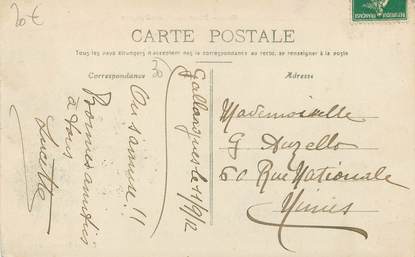 20€
CARTE POSTALE
Tous les pays étrangers n'acceptent pas la correspondance au recto, se renseigner à la poste
Correspondance
Adresse
Gallargues le 11/9/12
On s'amuse !!
Bonnes amitiés
à tous
Lucette
Mademoiselle
G Auzello
60 Rue Nationale
Nimes